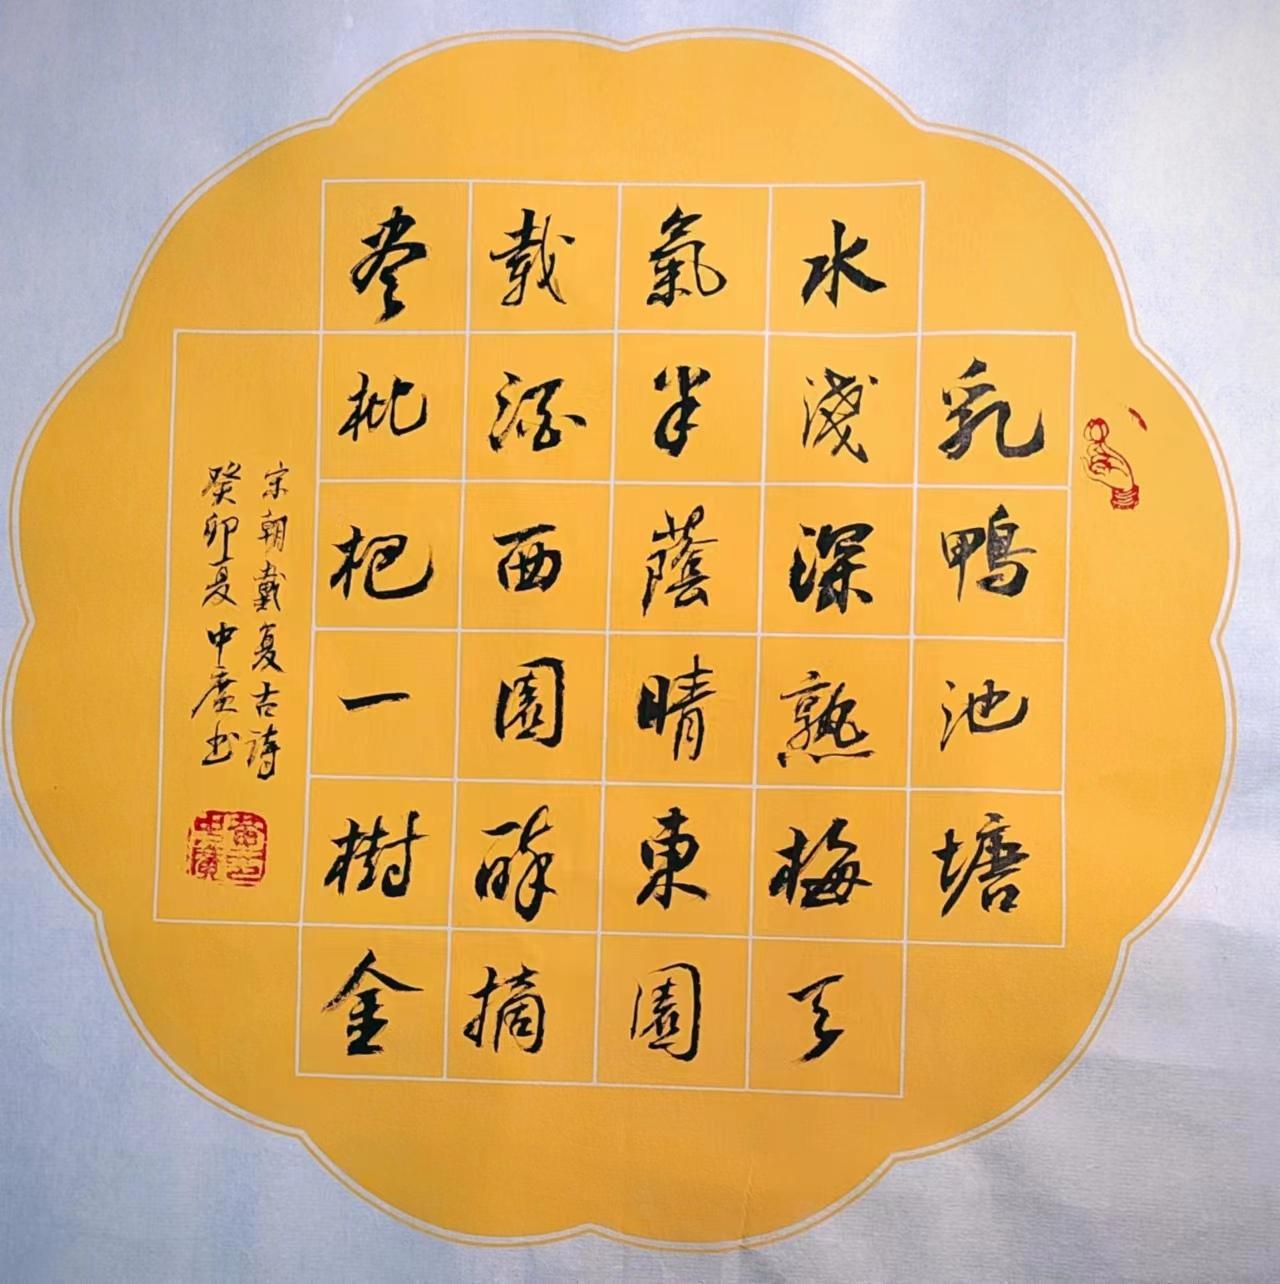 乳鴨池塘
水淺深熟梅天
氣半蔭晴東園
載酒西園醉摘
盡枇杷一樹金
宋朝戴复古詩
癸卯夏中廣书